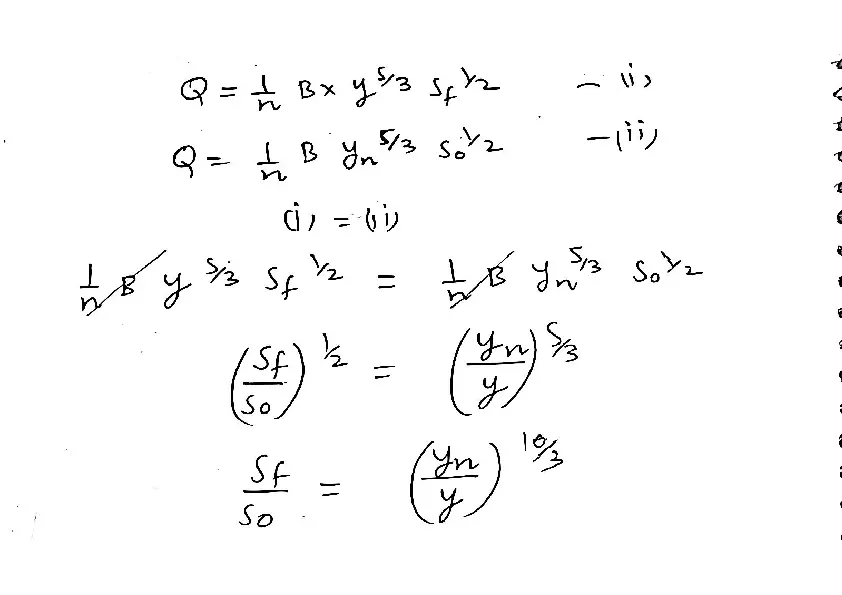 Q = 1/n B × y^5/3 Sf^1/2 – (i)
Q = 1/n B yn^5/3 So^1/2 – (ii)
(i) = (ii)
1/n B y^5/3 Sf^1/2 = 1/n B yn^5/3 So^1/2
(Sf/So)^1/2 = (yn/y)^5/3
Sf/So = (yn/y)^10/3